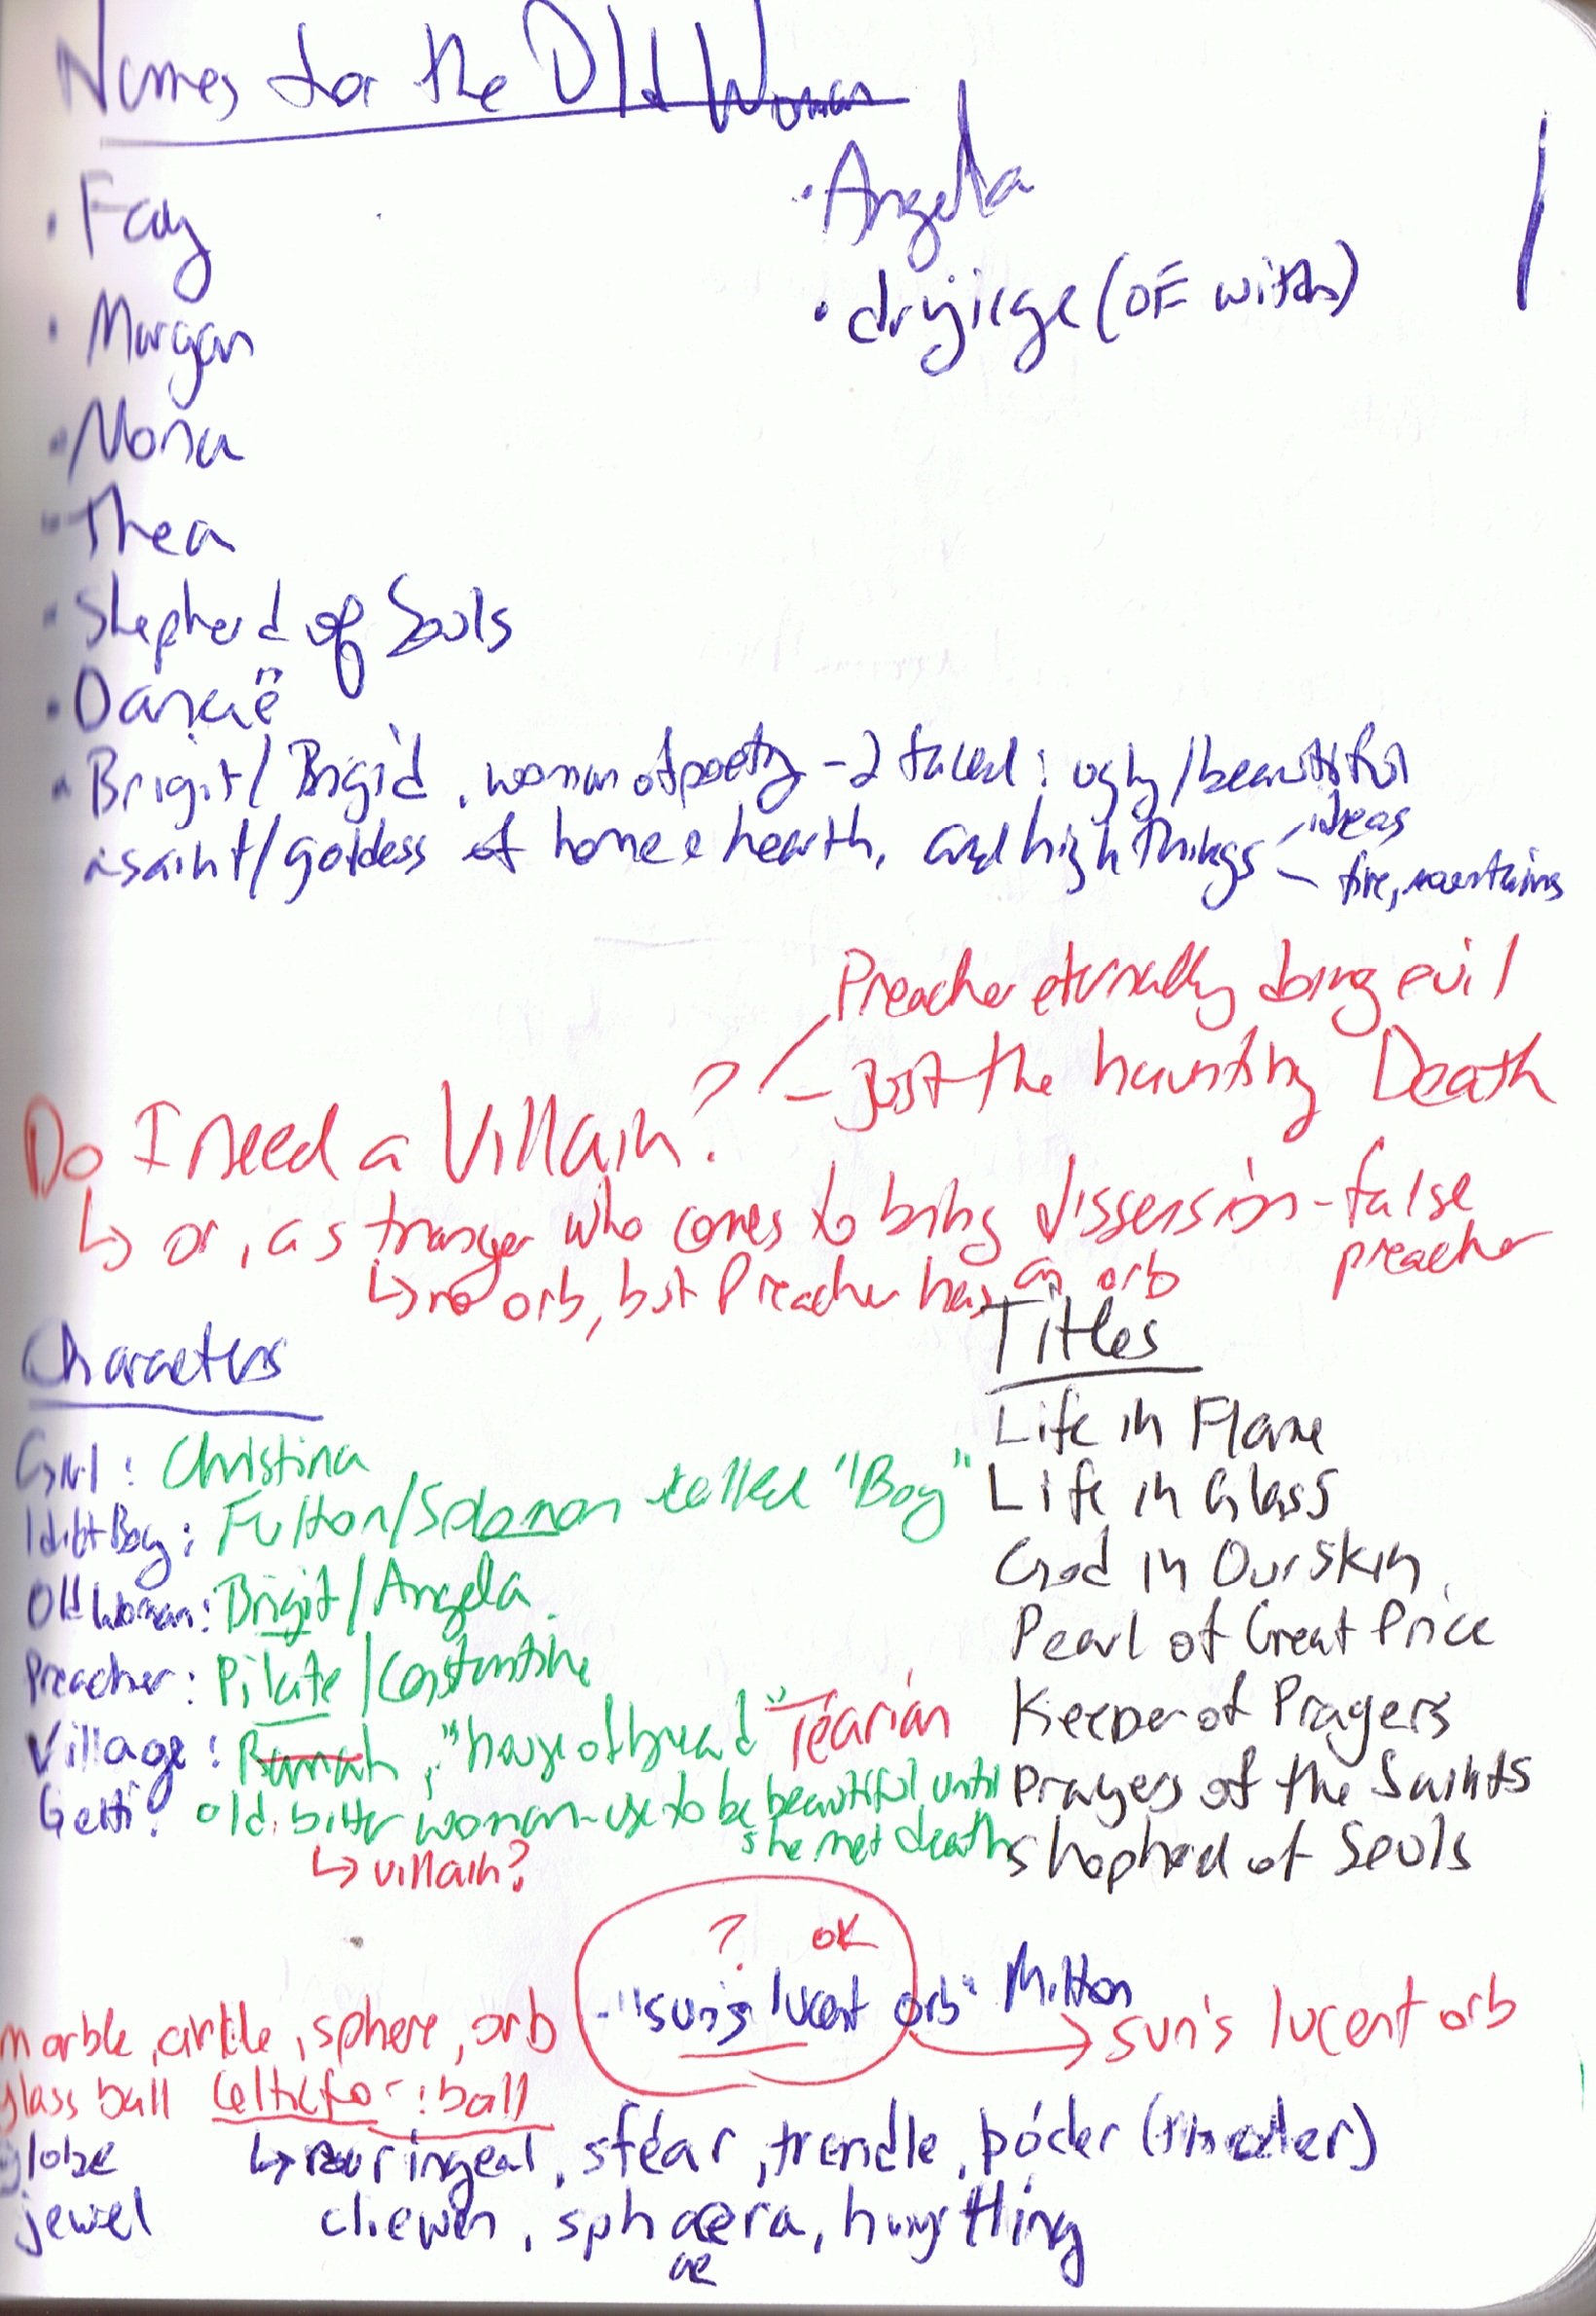 Names for the Old Woman
· Fay
· Morgan
· Nona
· Thea
· Shepherd of Souls
· Danaë
· Brigit/Brigid, woman of poetry - 2 faced: ugly/beautiful
saint/goddess of home & hearth, and high things
ideas
fire, mountains
· Angela
Preacher eternally doing evil
- just the haunting Death
Do I need a Villain?
↳ or, a stranger who comes to bring dissension - false
preacher
↳ no orb, but Preacher has an orb
Characters
Girl: Christina
Idiot Boy: Fulton/Solomon called "Boy"
Old Woman: Brigit/Angela
Preacher: Pilate/Constantine
Village: Ramah, "house of bread" Tearian
Getti: old, bitter woman - use to be beautiful until
she met death
↳ villain?
Titles
Life in Flame
Life in Glass
God in Our Skin
Pearl of Great Price
Keeper of Prayers
Prayers of the Saints
Shepherd of Souls
? OK
- "sun's lucent orb" Milton
→ sun's lucent orb
marble, circle, sphere, orb
glass ball Celtic for: ball
globe
jewel
↳ sféar, trendle, þóder
cliewen, sphaera,
ae